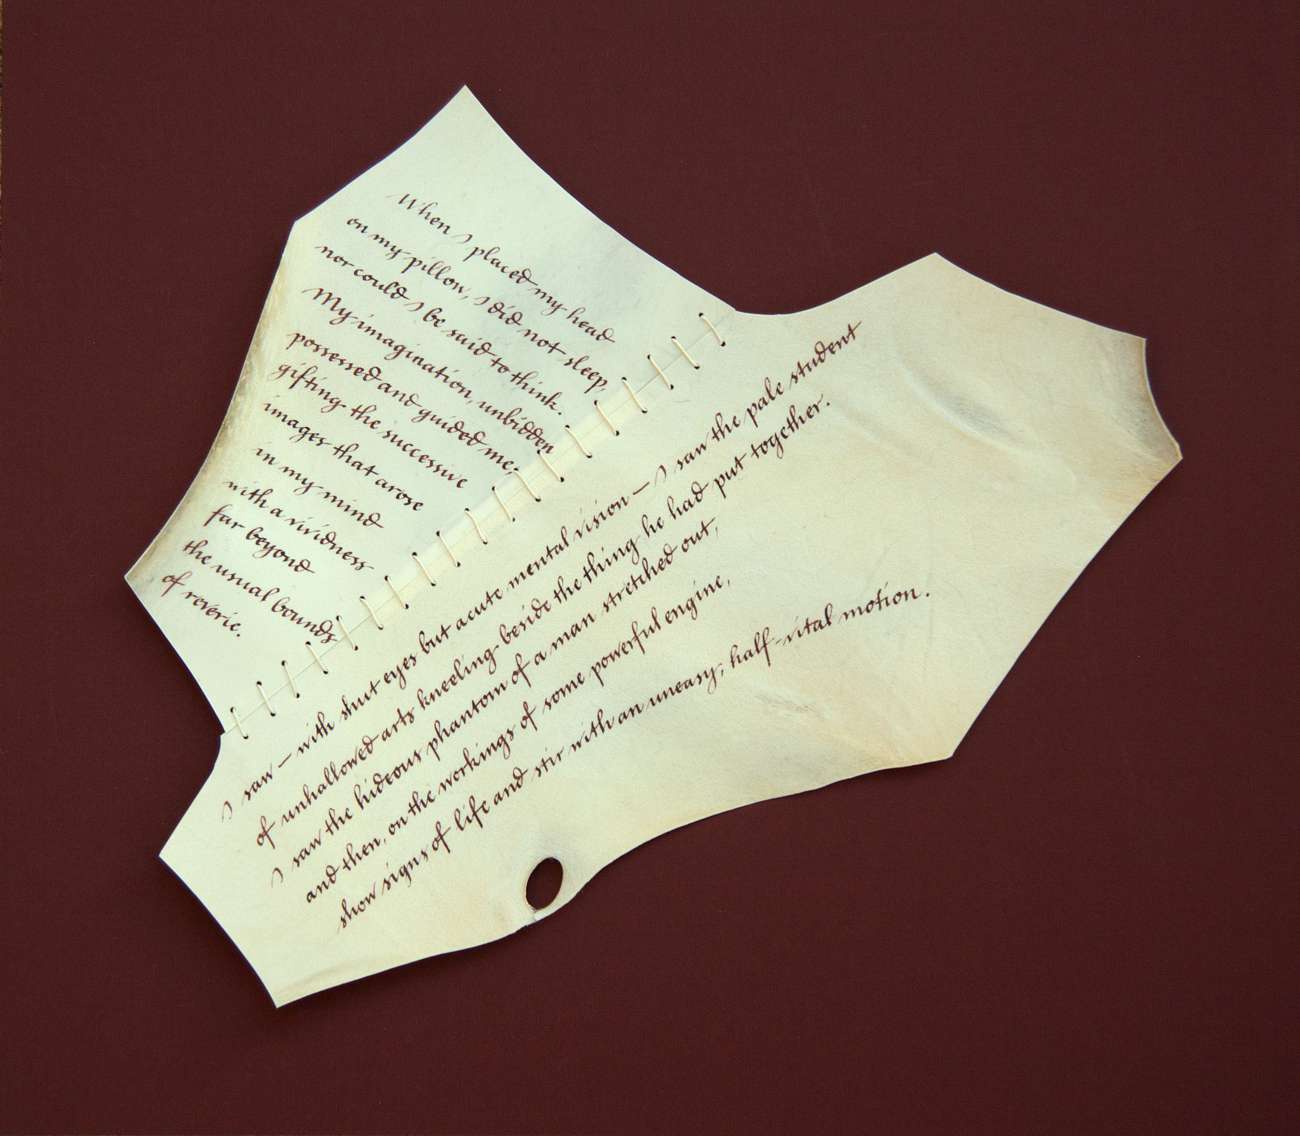 When I placed my head
on my pillow, I did not sleep,
nor could I be said to think.
My imagination, unbidden
possessed and guided me,
gifting the successive
images that arose
in my mind
with a vividness
far beyond
the usual bounds
of reverie.
I saw — with shut eyes but acute mental vision — I saw the pale student
of unhallowed arts kneeling beside the thing he had put together.
I saw the hideous phantom of a man stretched out,
and then, on the workings of some powerful engine,
show signs of life and stir with an uneasy, half-vital motion.